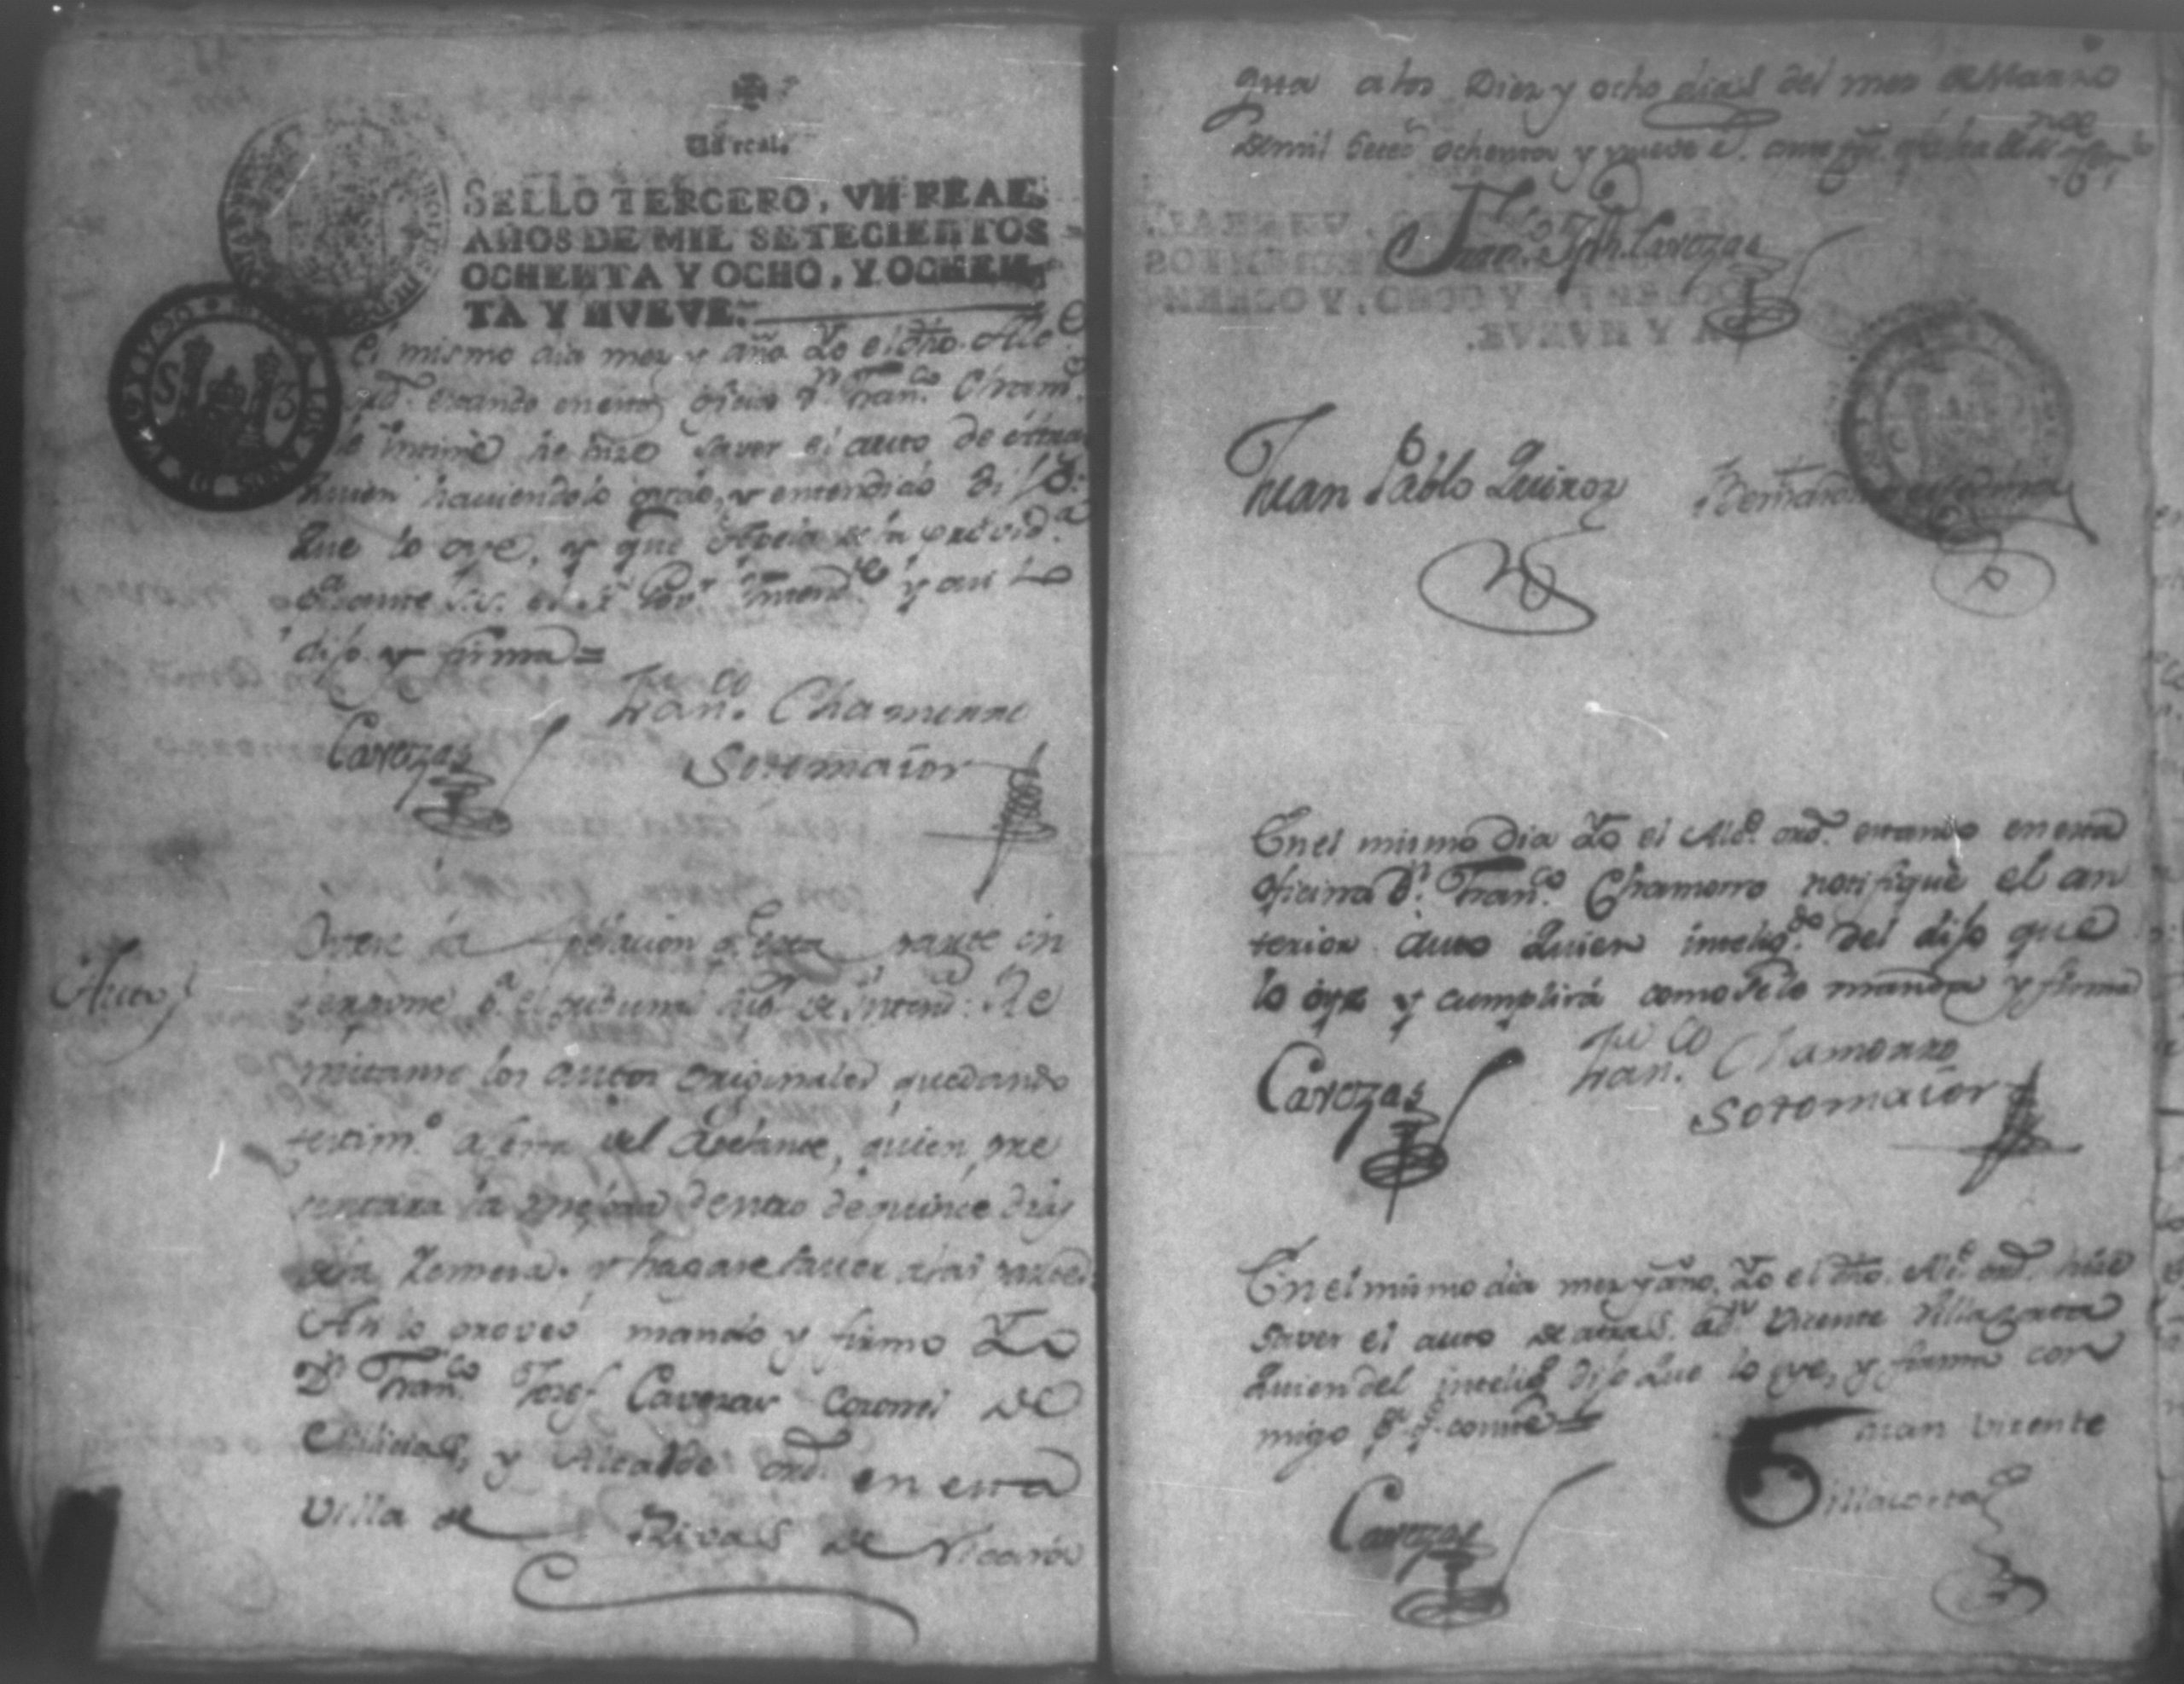 Un real.
SELLO TERCERO, VN REAL,
AÑOS DE MIL SETECIENTOS
OCHENTA Y OCHO, Y OCHEN-
TA Y NUEVE.
el mismo dia mes y año Yo el dho. Alce
ord. estando en esta ofizina Dn. Franco. Cham.
le intimé he hize saver el auto de
Quien haviendolo oydo, y entendido dijo:
Que lo oye, y que
Yntend. y asi lo
dijo y firma =
Franco. Chamorro
Cavezas
Sotomaior
Auto
la Apelacion qe. esta parte in
terpone pa. el tribunal de Yntend.a: Re
mitanse los autos originales quedando
testimo. del Apelante, quien pre
sentara la mejora dentro de quince dias
y hagase saver a las partes.
Asi lo proveó mandó y firmó Yo
Dn. Franco. Josef Cavezas Coronel de
Milicias, y Alcalde ord. en esta
Villa de Rivas de Nicara
gua a los Diez y ocho dias del mes de Marzo
de mil setes. ochenta y nueve
Franco. Jph. Cavezas
Juan Pablo Quiroz
En el mismo Dia Yo el Alce. ord. estando en esta
oficina Dn. Franco. Chamorro notifiqué el an
terior auto Quien inteligdo. del dijo que
lo oye y cumplirá como se lo manda y firma
Franco. Chamorro
Cavezas
Sotomaior
En el mismo dia mes y año, Yo el dho. Alce. ord. hise
saver el auto de atras a Dn. Vicente Villacorta
Quien del intelig. dijo Que lo oye, y firmó con
migo
Juan Vicente
Villacorta
Cavezas